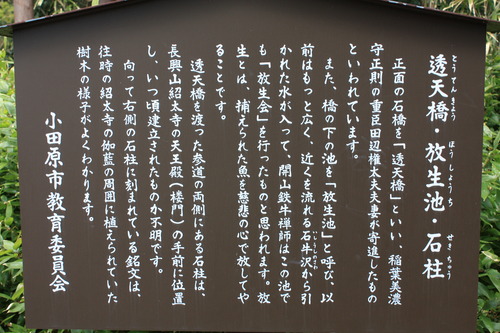 透天橋・放生池・石柱
とうてんきょう ほうしょうち せきちゅう
正面の石橋を「透天橋」といい、稲葉美濃
守正則の重臣田辺権太夫夫妻が寄進したもの
といわれています。
また、橋の下の池を「放生池」と呼び、以
前はもっと広く、近くを流れる石牛沢から引
かれた水が入って、開山鉄牛禅師はこの池で
も「放生会」を行ったものと思われます。放
生とは、捕えられた魚を慈悲の心で放してや
ることです。
透天橋を渡った参道の両側にある石柱は、
長興山紹太寺の天王殿(楼門)の手前に位置
し、いつ頃建立されたものか不明です。
向って右側の石柱に刻まれている銘文は、
往時の紹太寺の伽藍の周囲に植えられていた
樹木の様子がよくわかります。
小田原市教育委員会